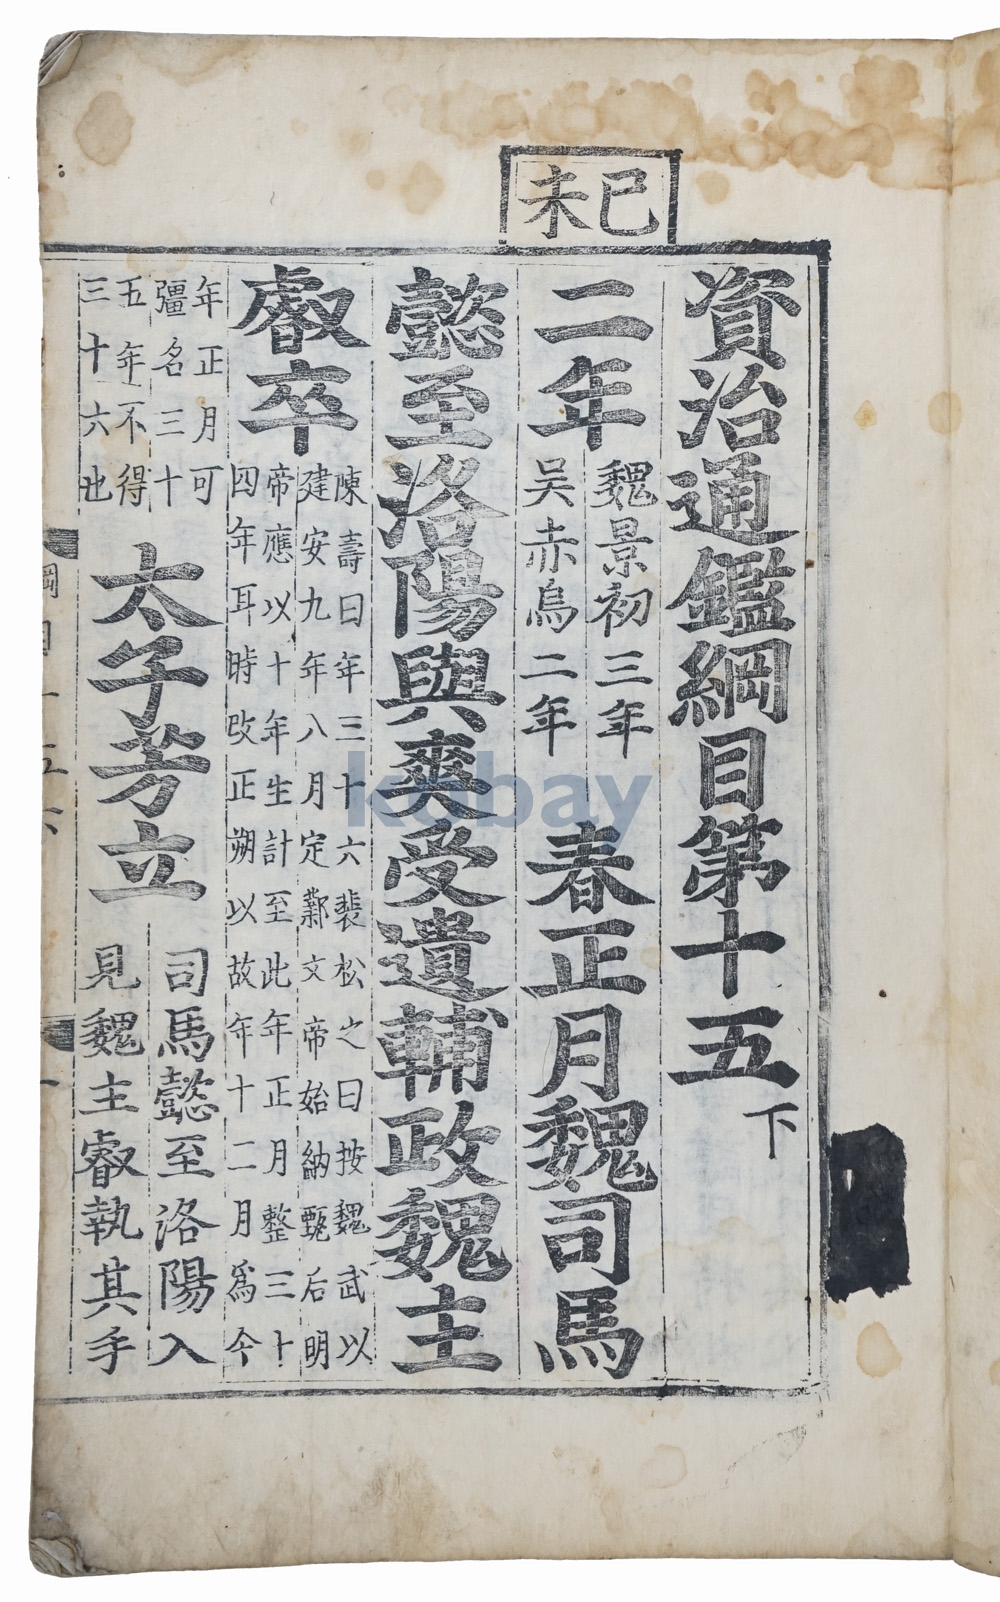 己未
資治通鑑綱目第十五下
二年
魏景初三年
吳赤烏二年
春正月魏司馬
懿至洛陽與爽受遺輔政魏主
叡卒
陳壽曰年三十六裴松之曰按魏武以
建安九年八月定鄴文帝始納甄后明
帝應以十年生計至此年正月整三十
四年耳時改正朔以故年十二月爲今
年正月可
彊名三十
五年不得
三十六也
太子芳立
司馬懿至洛陽入
見魏主叡執其手
綱目十五
kobay